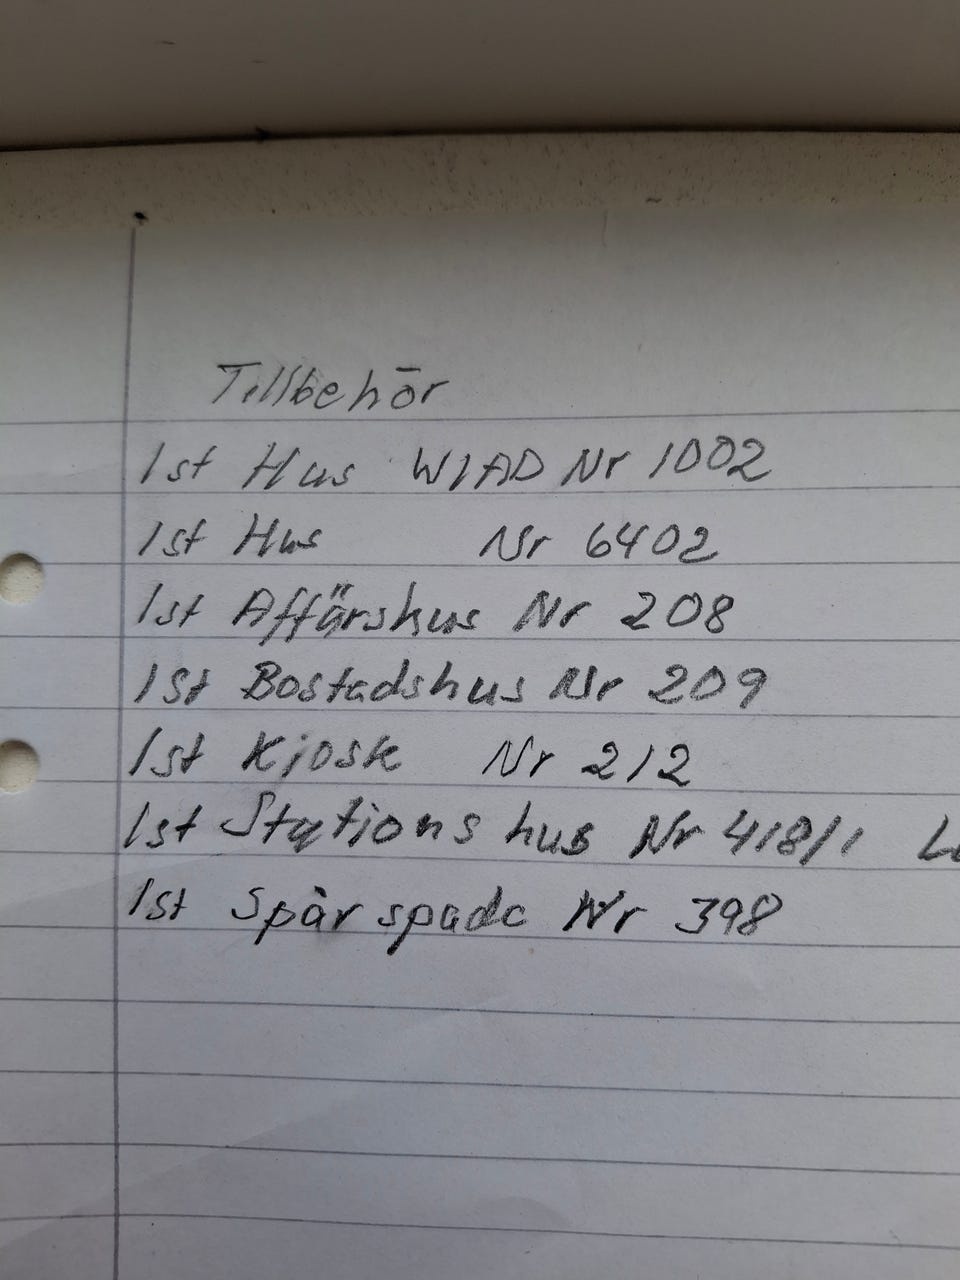 Tillbehör
1st Hus WIAD Nr 1002
1st Hus Nr 6402
1st Affärshus Nr 208
1st Bostadshus Nr 209
1st Kiosk Nr 212
1st Stationshus Nr 418/1
1st Spår spade Nr 398